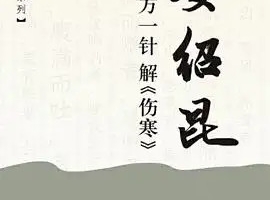 绍昆
方一针 解《伤寒》
列】